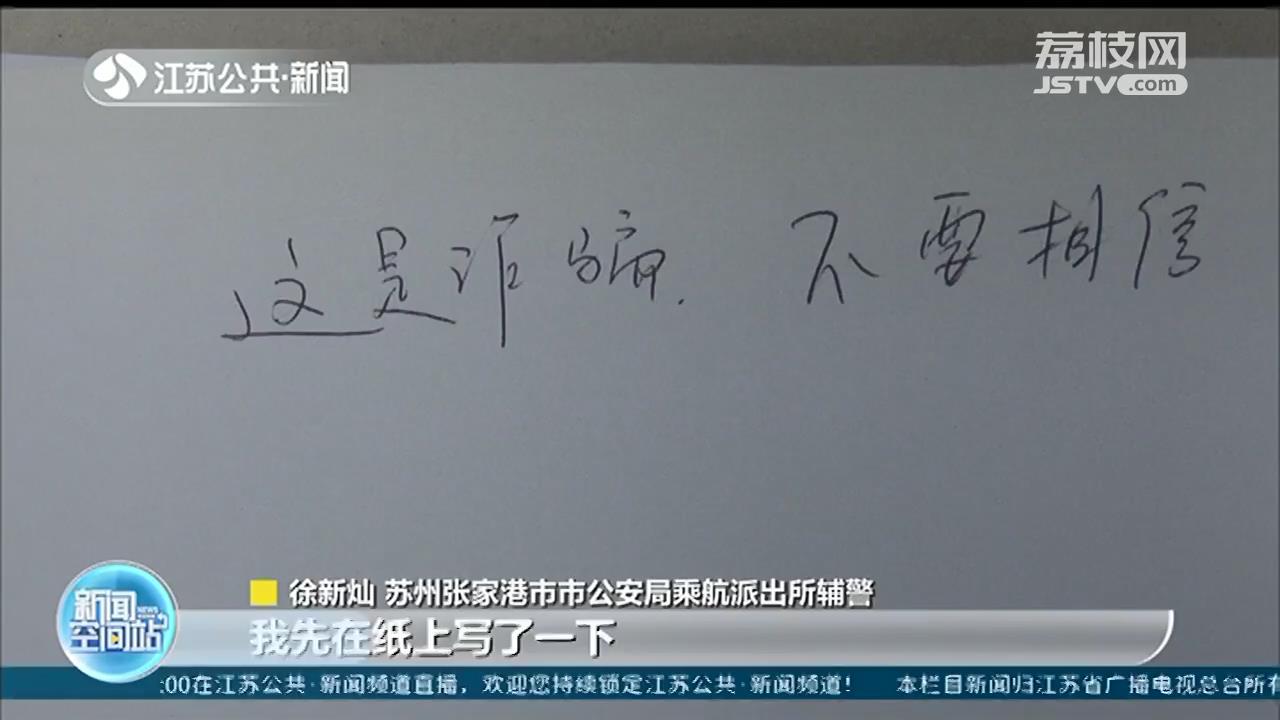 江苏公共·新闻
荔枝网
JSTV.com
这是诈骗. 不要相信
徐新灿 苏州张家港市市公安局乘航派出所辅警
我先在纸上写了一下
新闻
NEWS
空间站
:00在江苏公共·新闻频道直播，欢迎您持续锁定江苏公共·新闻频道! 本栏目新闻归江苏省广播电视总台所有